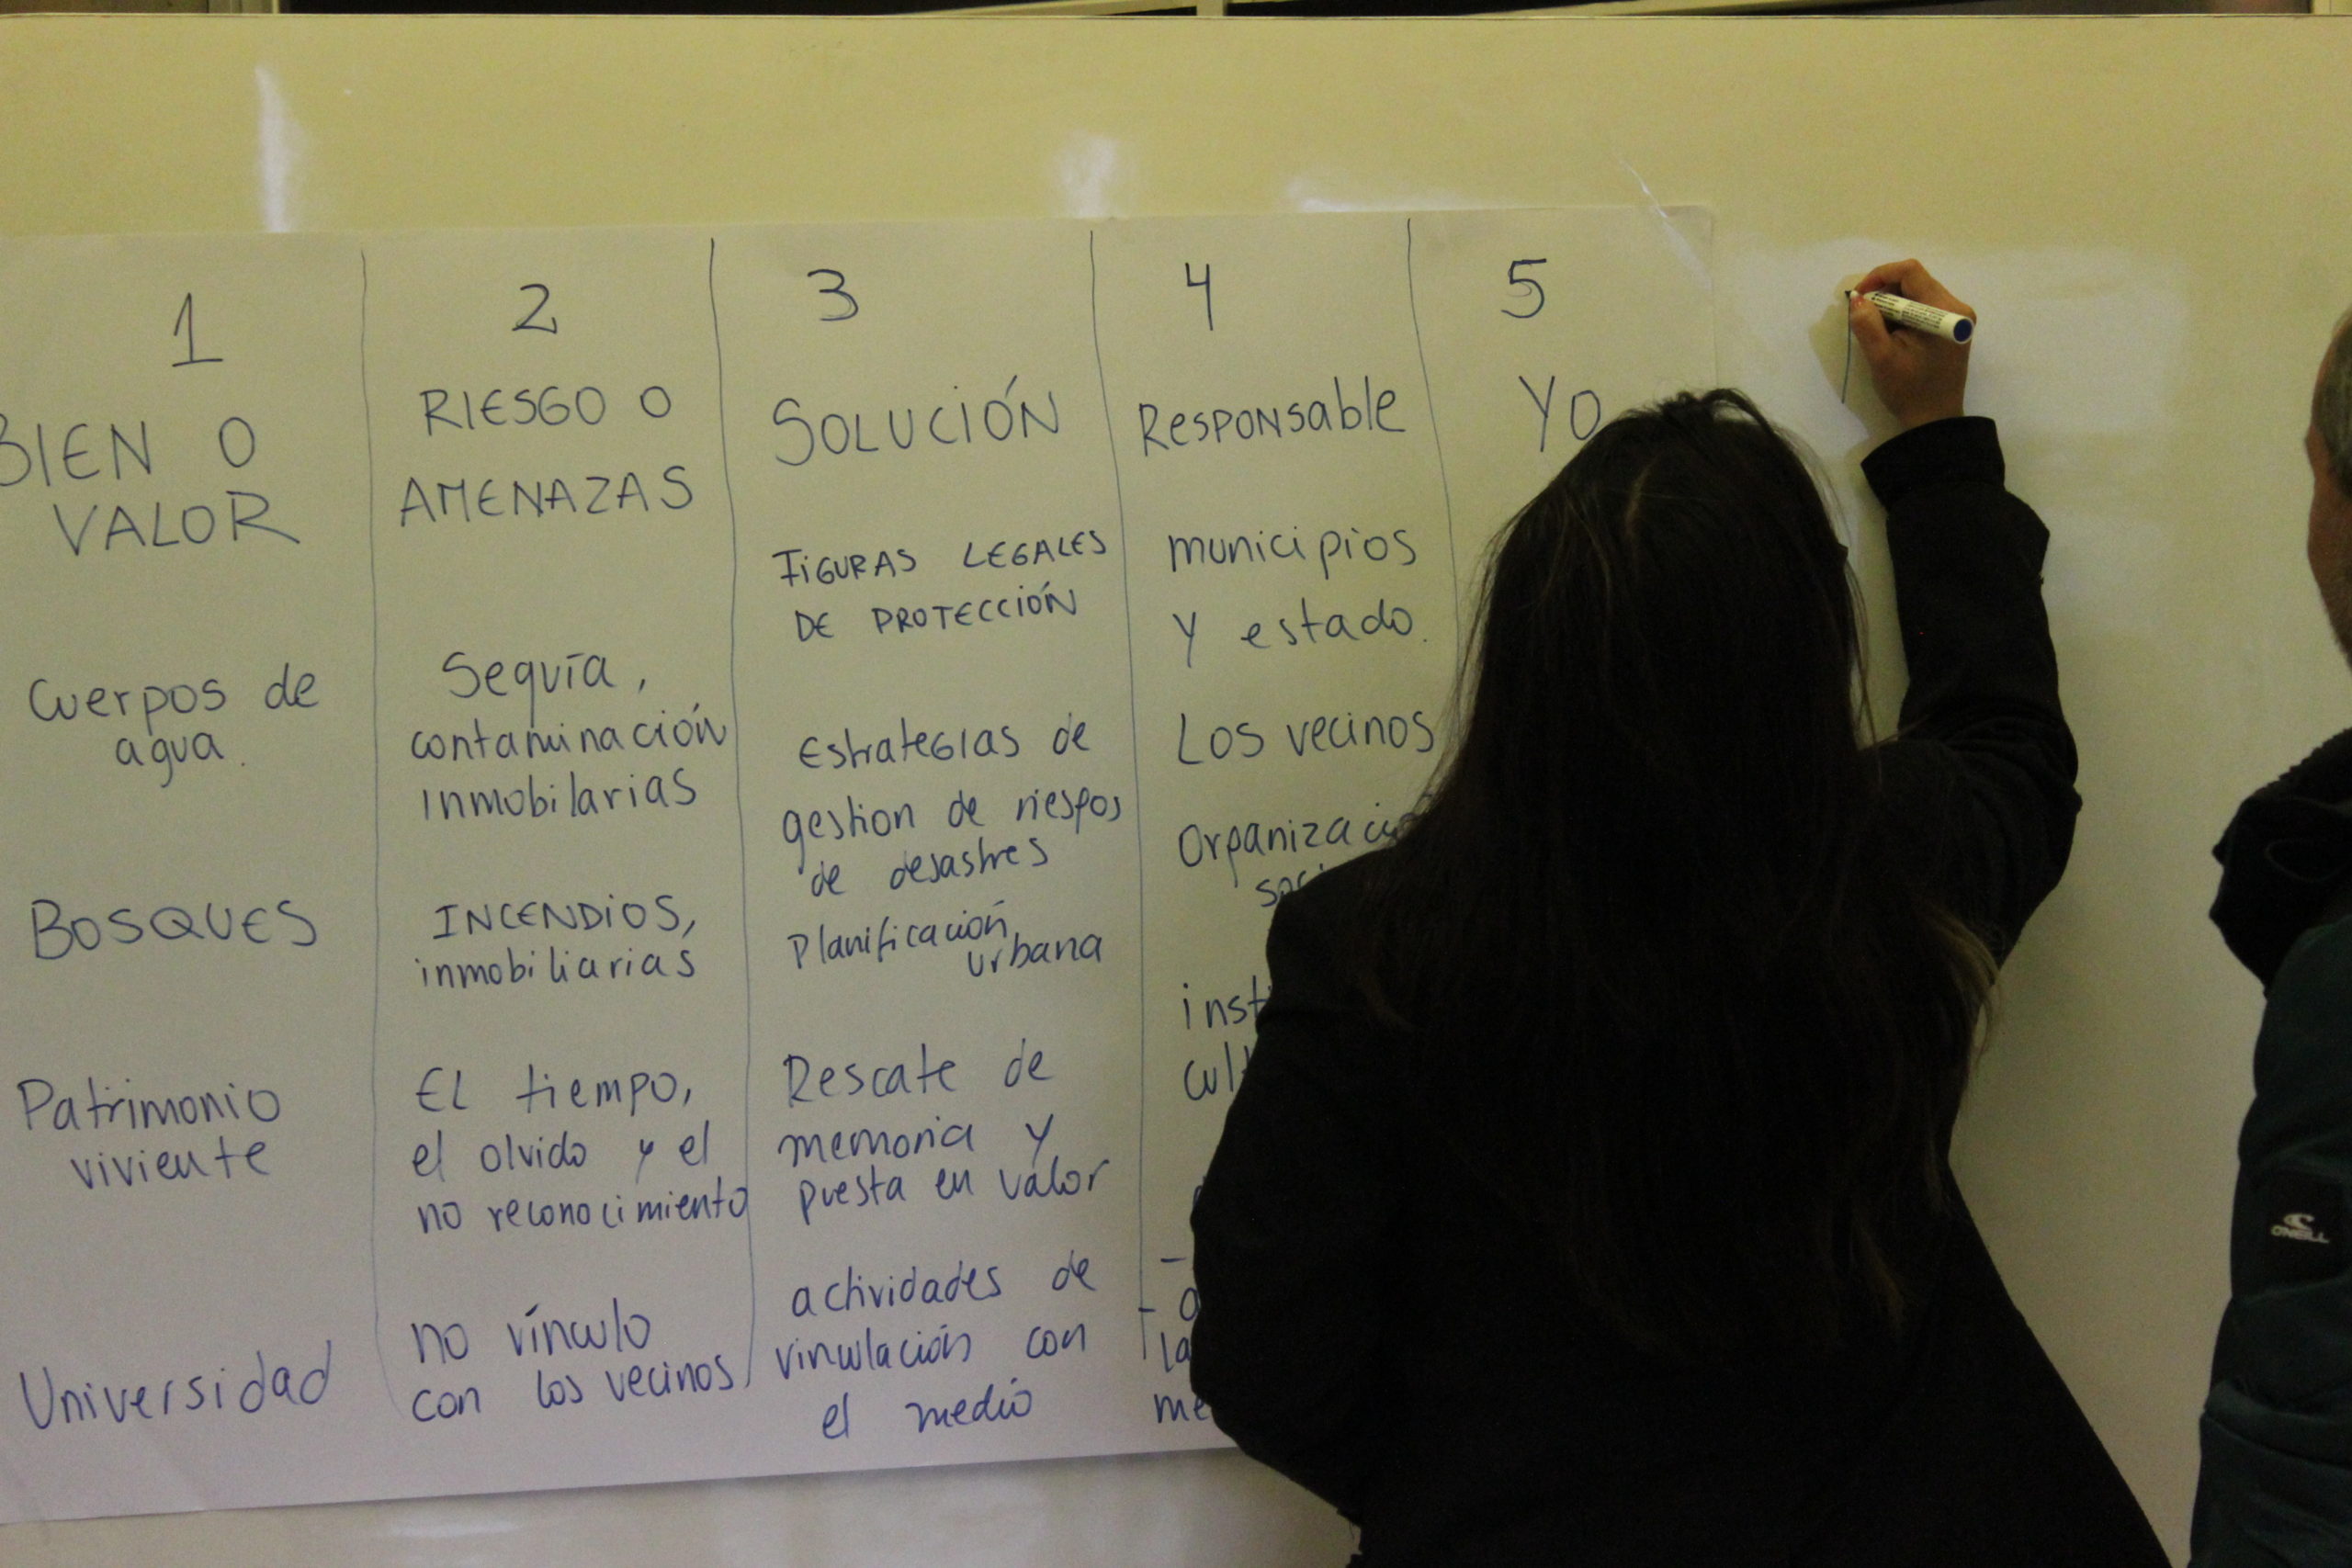 1
BIEN O
VALOR
Cuerpos de
agua.
BOSQUES
Patrimonio
viviente
Universidad
2
RIESGO O
AMENAZAS
Sequía,
contaminación
inmobilarias
INCENDIOS,
inmobiliarias
EL tiempo,
el olvido y el
no reconocimiento
no vínculo
con los vecinos
3
SOLUCIÓN
FIGURAS LEGALES
DE PROTECCIÓN
Estrategias de
gestion de riesgos
de desastres
Planificación
urbana
Rescate de
memoria y
puesta en valor
actividades de
vinculación con
el medio
4
Responsable
municipios
y estado.
Los vecinos
5
YO
O'NEILL